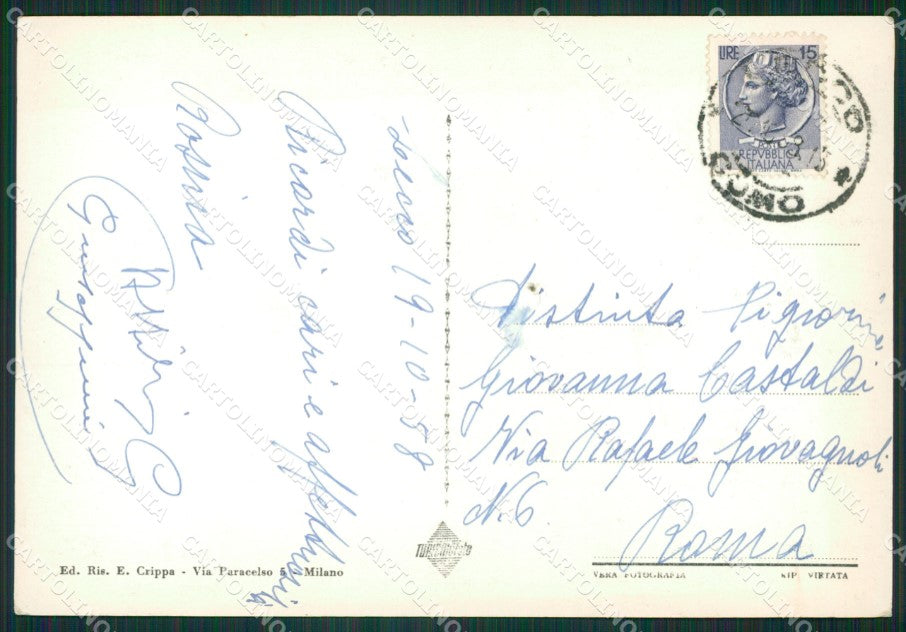 Lecco 19-10-58
Ricordi cari e affettuosi
Rosina
LIRE 15
REPVBBLICA
ITALIANA
LECCO
COMO
Distinta Signorina
Giovanna Castaldi
Via Rafaele Giovagnoli
N. 6.
Roma
Ed. Ris. E. Crippa - Via Paracelso 5 - Milano
VERA FOTOGRAFIA
RIP. VIETATA
CARTOLINOMANIA